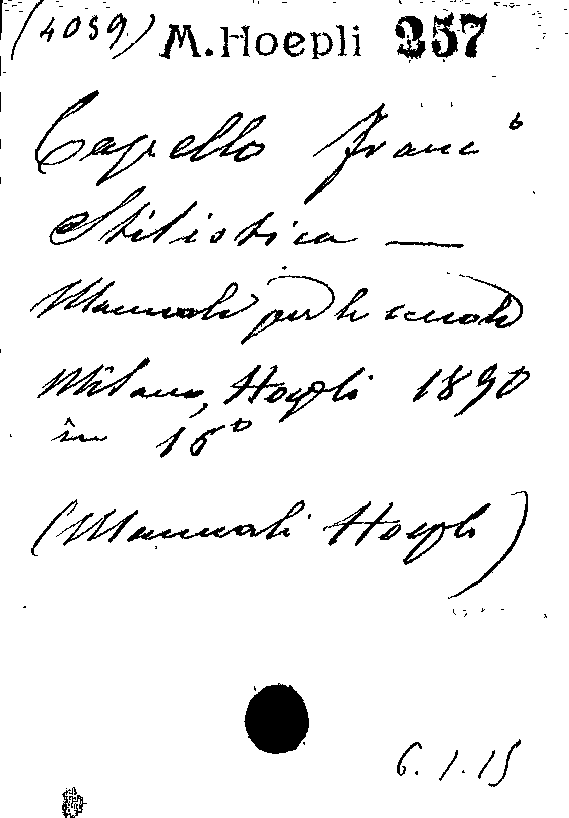 (4059) M. Hoepli 257
Capello Franc°
Stilistica —
Manuale per le scuole
Milano, Hoepli 1890
in 16°
(Manuali Hoepli)
6.1.15